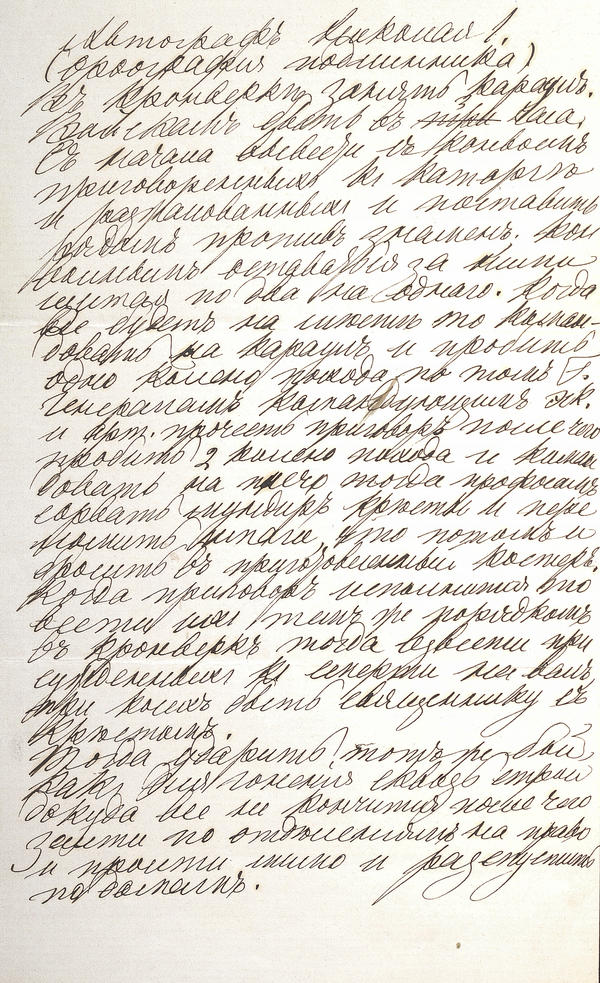 Автографъ Николая I.
(Орѳографія подлинника)
Въ кронверкѣ занять караулъ.
Войскамъ быть въ три 3 часа.
Съ начала вывести съ конвоемъ
приговоренныхъ къ каторгѣ
и разжалованныхъ и поставить
рядомъ противъ знаменъ. Кон
войнымъ оставаться за ними
щитая по два на одного. Когда
все будетъ на мѣстѣ то коман-
довать на караулъ и пробить
одно колено похода потомъ Г.
Генераламъ командующимъ эск.
и арт. прочесть приговоръ после чего
пробить 2 колено похода и коман
довать на плечо тогда профосамъ
сорвать мундиръ кресты и пере
ломить шпаги, что потомъ и
бросить въ приготовленный костеръ.
Когда приговоръ исполнится то
вести ихъ темъ же порядкомъ
въ кронверкъ тогда взвести при
сужденныхъ къ смерти на валъ
при коихъ быть священнику съ
крестомъ.
Тогда ударить тотъ же бой
какъ для гонения сквозь строй
докуда все не кончится после чего
зайти по отделениямъ на право
и пройти мимо и распустить
по домамъ.